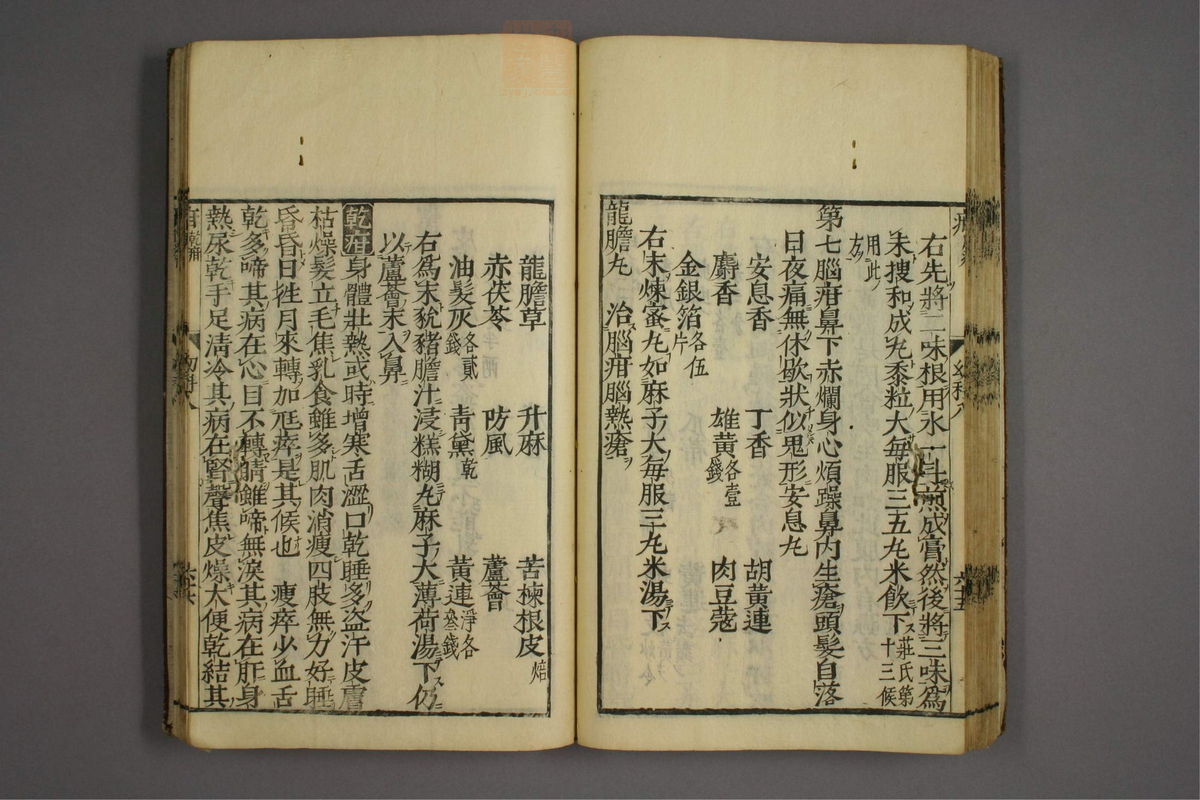 右先將二味根用水一斗煎成膏然後將三味爲
末搜和成丸黍粒大每服三五丸米飲下莊氏第十三候
用此方
第七腦疳鼻下赤爛身心煩躁鼻內生瘡頭髮自落
日夜痛無休歇狀似鬼形安息丸
安息香 丁香 胡黃連
麝香 雄黃各壹錢 肉豆蔻
金銀箔各伍片
右末煉蜜丸如麻子大每服三十丸米湯下
龍膽丸 治腦疳腦熱瘡
幼科八
六十五
龍膽草 升麻 苦楝根皮焙
赤茯苓 防風 蘆薈
油髮灰各貳錢 青黛乾 黃連淨各叄錢
右爲末豬膽汁浸糕糊丸麻子大薄荷湯下仍
以蘆薈末入鼻
乾疳身體壯熱或時增寒舌澀口乾睡多盜汗皮膚
枯燥髮立毛焦乳食雖多肌肉消瘦四肢無力好睡
昏昏日徃月來轉加尫瘁是其候也 瘦瘁少血舌
乾多啼其病在心目不轉睛雖啼無淚其病在肝身
熱尿乾手足淸冷其病在腎聲焦皮燥大便乾結其
疳 乾疳
幼科八
六十六